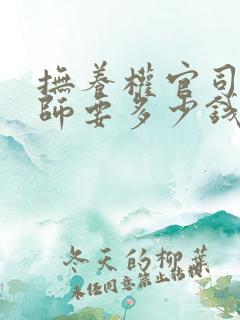 撫養權官司
師要多少錢
冬天的柳葉
未經同意禁止轉載